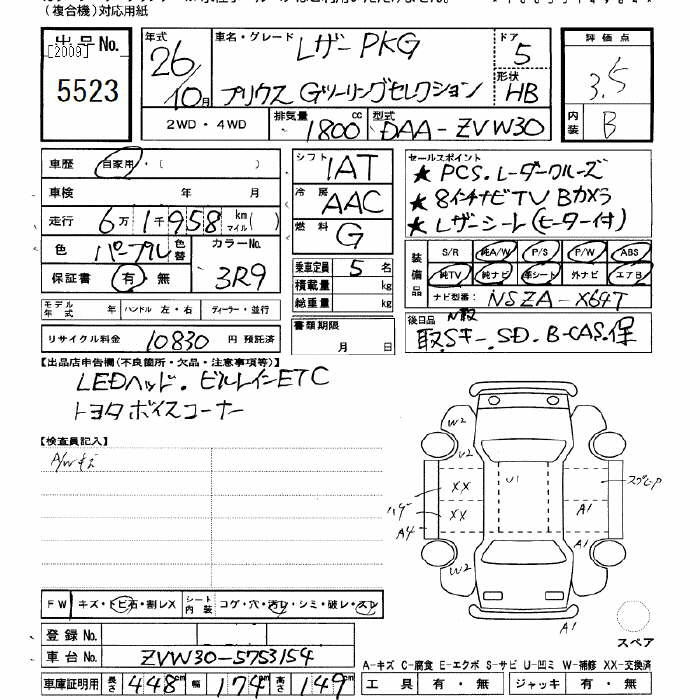 (複合機)対応用紙
出品No. [2009] 5523
年式 26/10月
車名・グレード レザーPKG
プリウス Gツーリングセレクション
ドア 5
形状 HB
2WD・4WD 排気量 1800cc 型式 DAA-ZVW30
評価点 3.5
内装 B
車歴 自家用・( )
車検 年 月
走行 6万1千958km マイル( )
色 パープル 色替 カラーNo. 3R9
保証書 有・無
モデル年式 年 ハンドル 左・右 ディーラー・並行
リサイクル料金 10830 円 預託済
シフト 1AT
冷房 AAC
燃料 G
乗車定員 5名
積載量 kg
総重量 kg
書類期限 月 日
セールスポイント
★ PCS.レーダークルーズ
★ 8インチナビTV Bカメラ
★ レザーシート(ヒーター付)
装備品 S/R 純A/W P/S P/W ABS
純TV 純ナビ 革シート 外ナビ エアB
ナビ型番: NSZA-X64T
後日品 N取
取.Sキー.SD.B-CAS.保
【出品店申告欄(不良箇所・欠品・注意事項等)】
LEDヘッド.ビルトインETC
トヨタボイスコーナー
【検査員記入】
A/Wキズ
W2
U2
XX
U1
スグレア
XX
A1
ハゲ
A4
A1
W2
A1
スペア
FW キズ・トビ石・割レX シート内装 コゲ・穴・汚レ・シミ・破レ・スレ
登録No.
車台No. ZVW30-5753154
車庫証明用 長さ 448cm 幅 174cm 高さ 149cm
A-キズ C-腐食 E-エクボ S-サビ U-凹ミ W-補修 XX-交換済
工具 有・無 ジャッキ 有・無